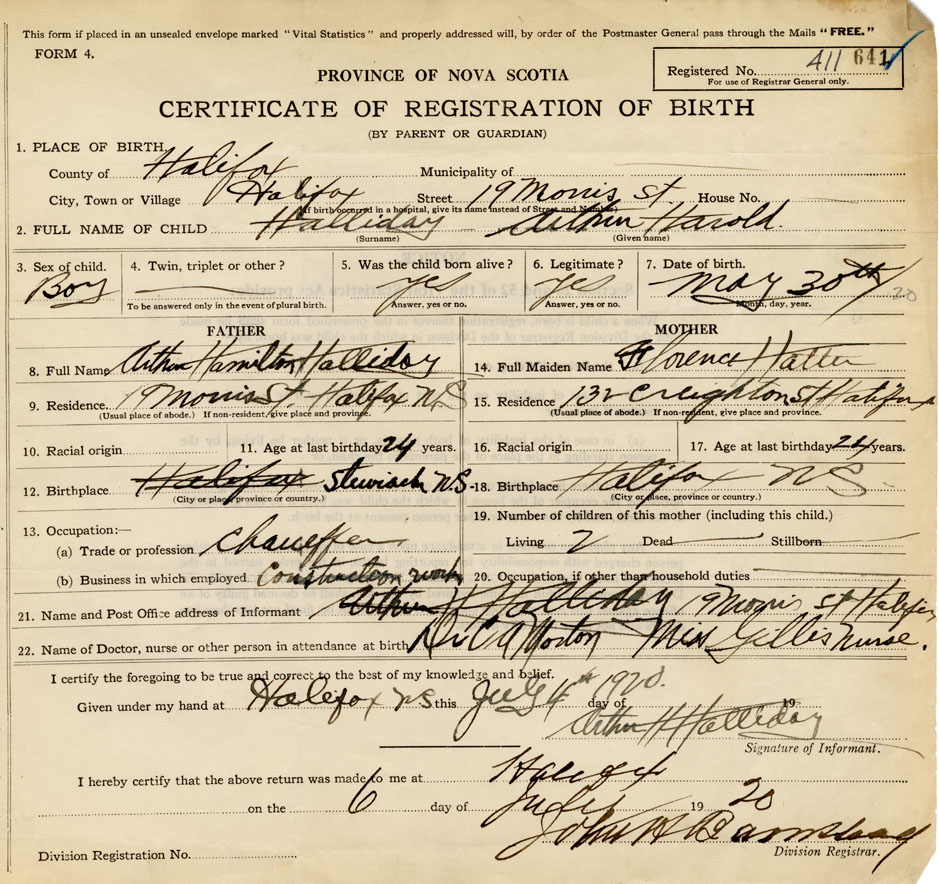 This form if placed in an unsealed envelope marked "Vital Statistics" and properly addressed will, by order of the Postmaster General pass through the Mails "FREE."
FORM 4.
Registered No. 411 641
For use of Registrar General only.
PROVINCE OF NOVA SCOTIA
CERTIFICATE OF REGISTRATION OF BIRTH
(BY PARENT OR GUARDIAN)
1. PLACE OF BIRTH.
County of Halifax Municipality of
City, Town or Village Halifax Street 19 Morris St. House No.
(If birth occurred in a hospital, give its name instead of Street and Number)
2. FULL NAME OF CHILD Halliday Arthur Harold.
(Surname) (Given name)
3. Sex of child. 4. Twin, triplet or other? 5. Was the child born alive? 6. Legitimate? 7. Date of birth.
Boy Yes Yes May 30th/20
To be answered only in the event of plural birth. Answer, yes or no. Answer, yes or no. Month, day, year.
FATHER MOTHER
8. Full Name Arthur Hamilton Halliday 14. Full Maiden Name Florence Hatter
9. Residence. 19 Morris St Halifax N.S 15. Residence 132 Creighton St Halifax
(Usual place of abode.) If non-resident, give place and province. (Usual place of abode.) If non-resident, give place and province.
10. Racial origin 11. Age at last birthday 24 years. 16. Racial origin 17. Age at last birthday 24 years.
12. Birthplace Halifax N.S- 18. Birthplace Halifax NS
(City or place, province or country.) (City or place, province or country.)
13. Occupation:— 19. Number of children of this mother (including this child.)
(a) Trade or profession Chauffer Living 2 Dead Stillborn
(b) Business in which employed Construction work 20. Occupation, if other than household duties
21. Name and Post Office address of Informant Arthur H Halliday 19 Morris St Halifax
22. Name of Doctor, nurse or other person in attendance at birth Dr C A Morton Miss Gillis Nurse.
I certify the foregoing to be true and correct to the best of my knowledge and belief.
Given under my hand at Halifax NS this July 4th 1920. day of 19
Arthur H Halliday
Signature of Informant.
I hereby certify that the above return was made to me at Halifax
on the 6 day of July 19 20
John A
Division Registration No. Division Registrar.